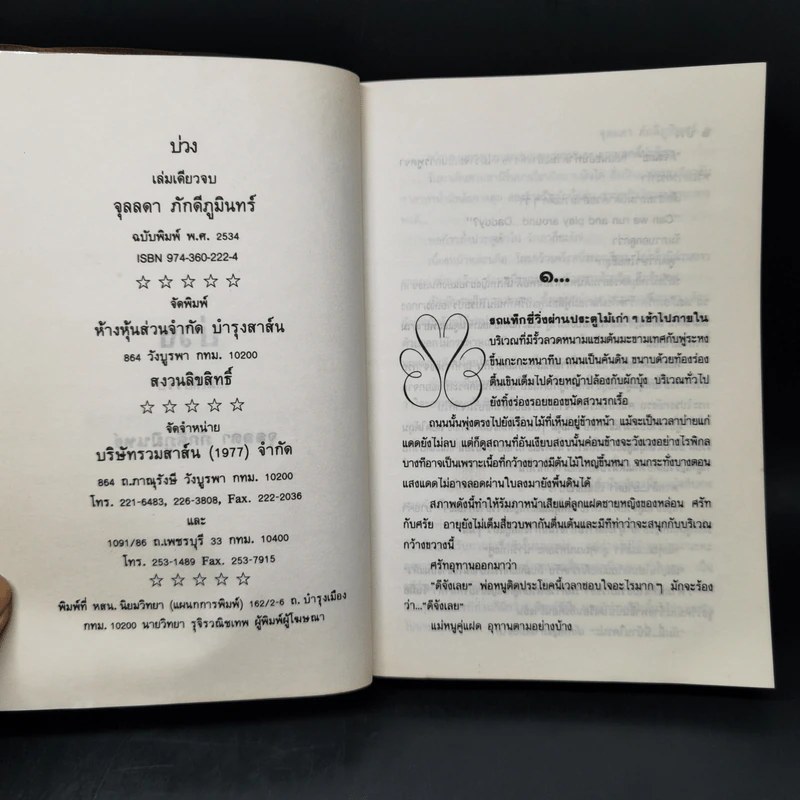 บ่วง
เล่มเดียวจบ
จุลลดา ภักดีภูมินทร์
ฉบับพิมพ์ พ.ศ. 2534
ISBN 974-360-222-4
☆ ☆ ☆ ☆ ☆
จัดพิมพ์
ห้างหุ้นส่วนจำกัด บำรุงสาส์น
864 วังบูรพา กทม. 10200
สงวนลิขสิทธิ์
☆ ☆ ☆ ☆ ☆
จัดจำหน่าย
บริษัทรวมสาส์น (1977) จำกัด
864 ถ.ภาณุรังษี วังบูรพา กทม. 10200
โทร. 221-6483, 226-3808, Fax. 222-2036
และ
1091/86 ถ.เพชรบุรี 33 กทม. 10400
โทร. 253-1489 Fax. 253-7915
☆ ☆ ☆ ☆ ☆
พิมพ์ที่ หสน.นิยมวิทยา (แผนกการพิมพ์) 162/2-6 ถ. บำรุงเมือง
กทม. 10200 นายวิทยา รุจิรวณิชเทพ ผู้พิมพ์ผู้โฆษณา
๑...
รถแท็กซี่วิ่งผ่านประตูไม้เก่า ๆ เข้าไปภายใน
บริเวณที่มีรั้วลวดหนามแซมต้นมะขามเทศกับพู่ระหง
ขึ้นเกะกะหนาทึบ ถนนเป็นคันดิน ขนาบด้วยท้องร่อง
ตื้นเขินเต็มไปด้วยหญ้าปล้องกับผักบุ้ง บริเวณทั่วไป
ยังทิ้งร่องรอยของขนัดสวนรกเรื้อ
ถนนนั้นพุ่งตรงไปยังเรือนไม้ที่เห็นอยู่ข้างหน้า แม้จะเป็นเวลาบ่ายแก่
แดดยังไม่ลบ แต่ก็ดูสถานที่อันเงียบสงบนั้นค่อนข้างจะวังเวงอย่างไรพิกล
บางทีอาจเป็นเพราะเนื้อที่กว้างขวางมีต้นไม้ใหญ่ขึ้นหนา จนกระทั่งบางตอน
แสงแดดไม่อาจลอดผ่านใบลงมายังพื้นดินได้
สภาพดังนี้ทำให้รัมภาหน้าเสียแต่ลูกแฝดชายหญิงของหล่อน ศรัท
กับศรัย อายุยังไม่เต็มสี่ขวบพากันตื่นเต้นและมีทีท่าว่าจะสนุกกับบริเวณ
กว้างขวางนี้
ศรัทอุทานออกมาว่า
"ดีจังเลย" พ่อหนูติดประโยคนี้เวลาชอบใจอะไรมาก ๆ มักจะร้อง
ว่า..."ดีจังเลย"
แม่หนูคู่แฝด อุทานตามอย่างบ้าง